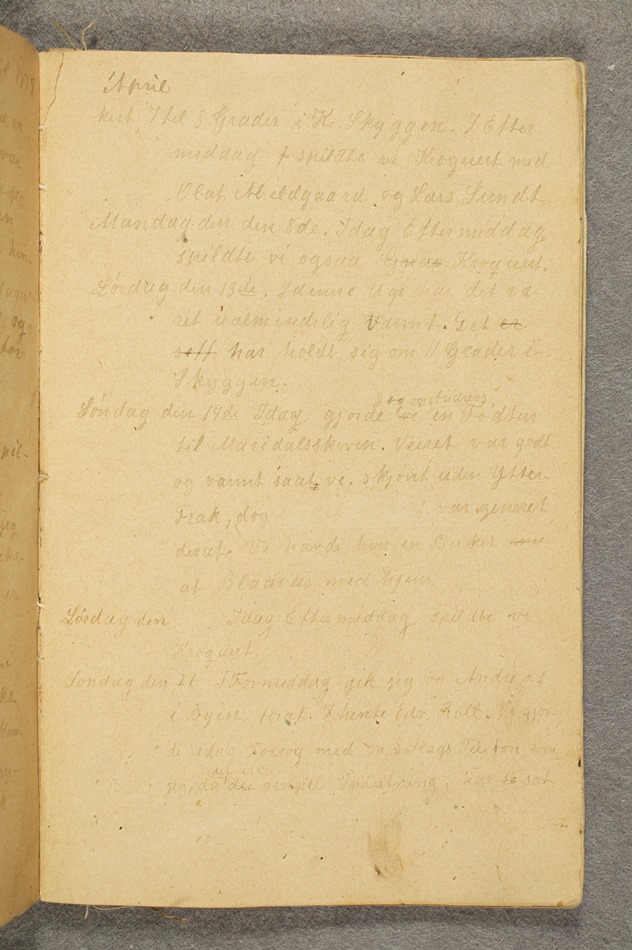 April
kert 7 til 8 Grader i K Skyggen. I Efter
middag spildte vi Kroquert med
Olaf Meldgaard og Lars Lundt.
Mandag den den 8de. Idag Eftermiddag
spildte vi ogsaa Kroquert.
Lördag den 13de. I denne Uge har det væ-
ret ualmindelig Varmt. Det er
har holdt sig om 11 Grader i
Skyggen.
og Andreas
Söndag den 14de Idag gjorde vi en Fodtur
til Maridalsskoven. Veiret var godt
og varmt saat ve. skjönt uden Ytter-
Frak, dog var generet
deraf. Vi havde hver en Buket
af Blaaveis med hjem
Lördag den Idag Eftermiddag spildte vi
Kroquert.
Söndag den 21 I Formiddag gik jeg og Andreas
i Byen for at hente Edv. Roll. Vi gjor
de idag Forsög med en Slags Telefon som
jeg, da det Indretning, har sat